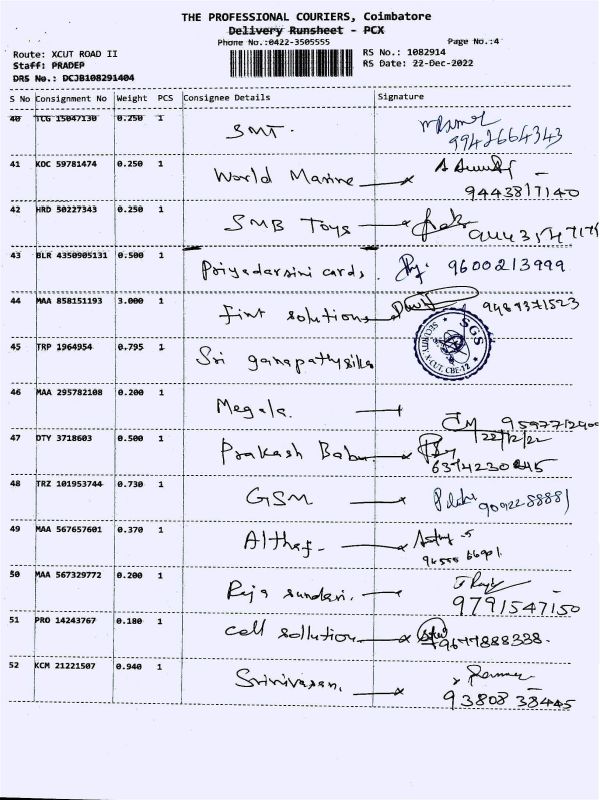 THE PROFESSIONAL COURIERS, Coimbatore
Delivery Runsheet - PCX
Phone No.:0422-3505555 Page No.:4
Route: XCUT ROAD II RS No.: 1082914
Staff: PRADEP RS Date: 22-Dec-2022
DRS No.: DCJB108291404
S No Consignment No Weight PCS Consignee Details Signature
40 TCG 15047130 0.250 1 SMT.
9942664343
41 KOC 59781474 0.250 1 World Marine
9443817140
42 HRD 50227343 0.250 1 SMB Toys
43 BLR 4350905131 0.500 1 Priyadarsini cards. 9600213999
44 MAA 858151193 3.000 1 fint solutions 9489371523
SGS
SECURITY X-CUT, CBE-12
45 TRP 1964954 0.795 1 Sri ganapathysilks
46 MAA 295782108 0.200 1 Megala.
22/12/22
47 DTY 3718603 0.500 1 Prakash Babu.
6374230845
48 TRZ 101953744 0.730 1 GSM
49 MAA 567657601 0.370 1 Althaf.
50 MAA 567329772 0.200 1 Raja sundari.
9791547150
51 PRO 14243767 0.180 1 cell sollution 9677888388.
52 KCM 21221507 0.940 1 Srinivasan.
93808 38445